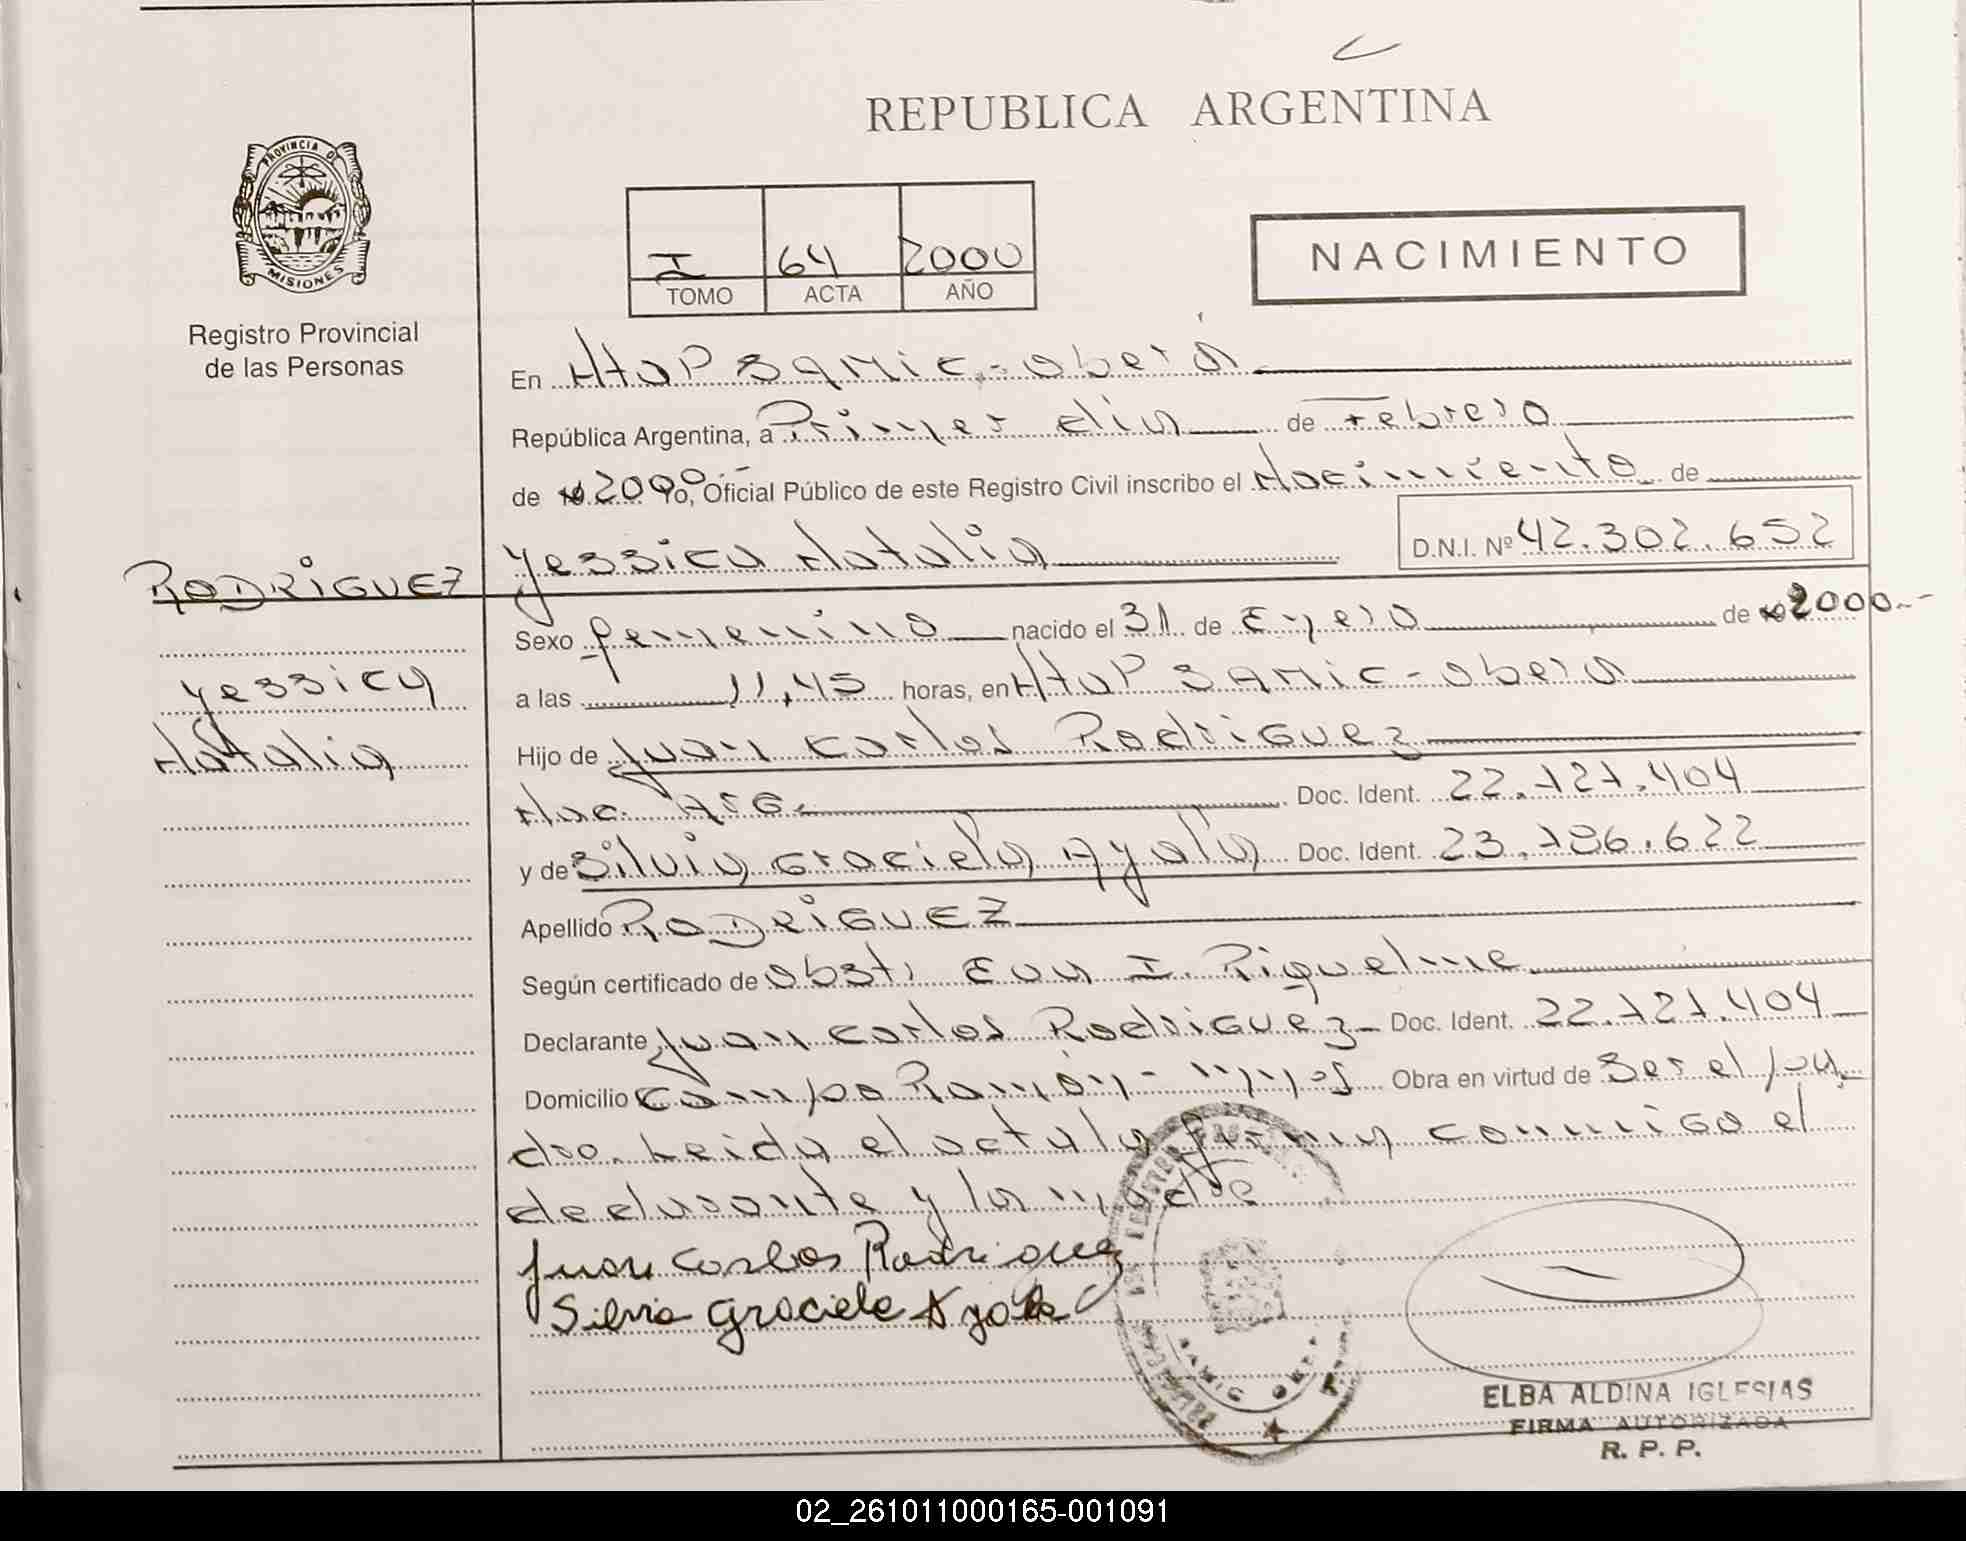 REPUBLICA ARGENTINA
PROVINCIA DE
MISIONES
Registro Provincial
de las Personas
I 64 2000
TOMO ACTA AÑO
NACIMIENTO
En Htap SAMIC - Oberá
República Argentina, a Primer día de Febrero
de 2000 yo, Oficial Público de este Registro Civil inscribo el Nacimiento de
Yessica Natalia D.N.I. Nº 42.302.652
RODRIGUEZ
Yessica
Natalia
Sexo femenino nacido el 31 de Enero de 2000.--
a las 11,45 horas, en Htap SAMIC - Oberá
Hijo de Juan Carlos Rodriguez
Nac. Arg. Doc. Ident. 22.121.404
y de Silvia Graciela Ayala Doc. Ident. 23.186.622
Apellido RODRIGUEZ
Según certificado de Obst. Eva I. Riquelme
Declarante Juan Carlos Rodriguez - Doc. Ident. 22.121.404
Domicilio Campo Ramón - Mnes Obra en virtud de Ser el pa-
dre. Leida el acta la firma conmigo el
declarante y la madre
Juan Carlos Rodriguez
Silvia Graciela Ayala
SAMIC OBERA
ELBA ALDINA IGLESIAS
FIRMA AUTORIZADA
R. P. P.
02_261011000165-001091